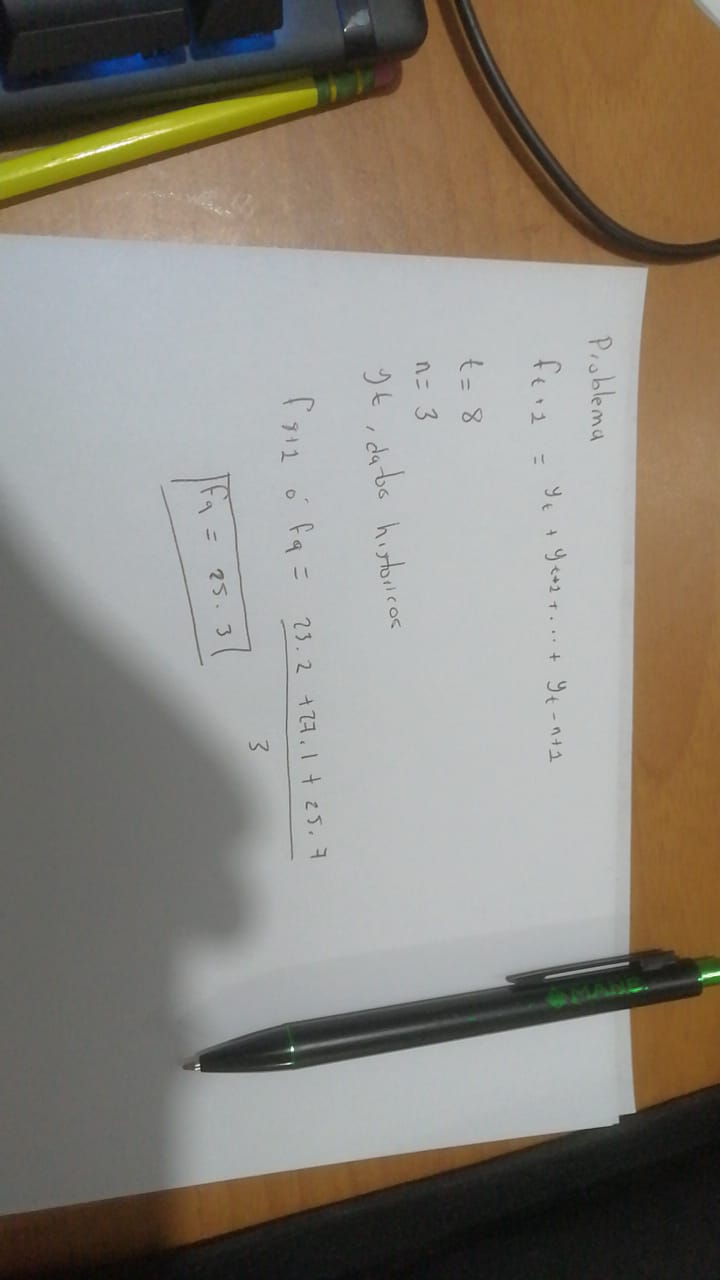 Problema
f t+1 = yt + yt+1 + ... + yt-n+1
t = 8
n = 3
yt, datos historicos
f 8+1 ó f9 = 23.2 + 27.1 + 25.7
3
f9 = 25.3